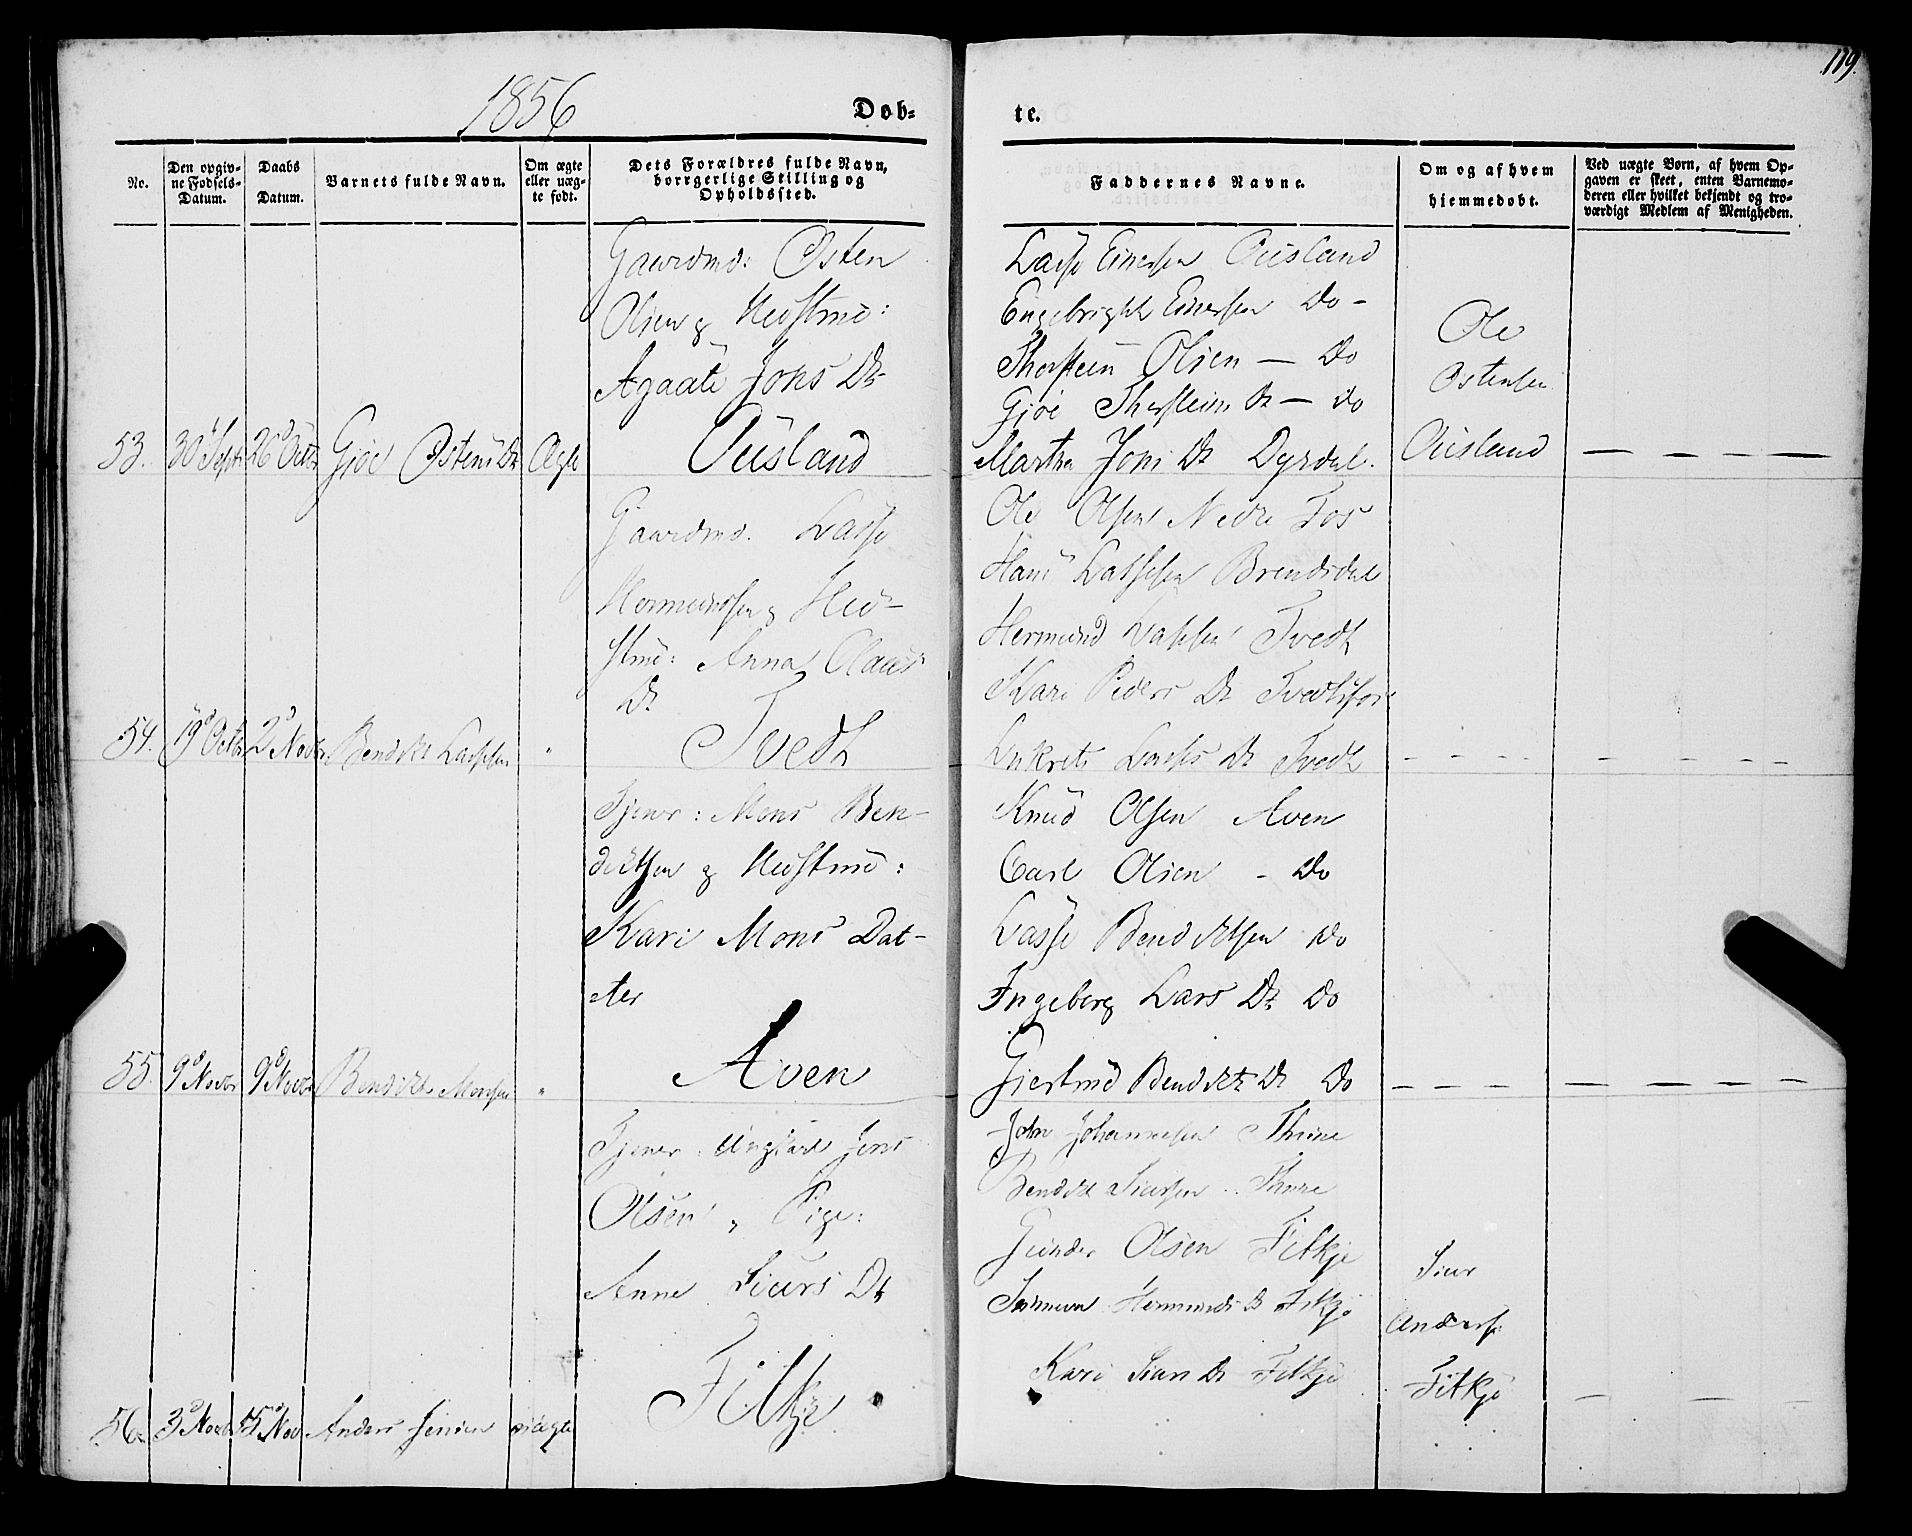 1856
119.
Døb=
te.
No.
Den opgiv-
ne Fødsels-
Datum.
Daabs
Datum.
Barnets fulde Navn.
Om ægte
eller uæg-
te født.
Dets Forældres fulde Navn,
borrgerlige Stilling og
Opholdssted.
Faddernes Navne.
Om og af hvem
hjemmedøbt.
Ved uægte Børn, af hvem Op-
gaven er skeet, enten Barnemo-
deren eller hvilket bekjendt og tro-
værdigt Medlem af Menigheden.
53. 30 Septr 26 Octbr Gjøe Østens Dt Ægte
Gaardmd: Østen
Olsen og Hustrue:
Agaate Jons Dt
Ousland
Lasse Einersen Ousland
Engebrigt Einersen Do -
Thorstein Olsen — Do
Gjøe Thorsteins Dt — Do
Martha Jons Dt Dyrdal.
Ole
Ostensen
Ousland — — — —
54. 19 Octbr 2 Novbr Bendikt Lassesen "
Gaardmd. Lasse
Hermundsen og Hu-
strue: Anna Olaus
Dt
Tvedt
Ole Olsen Nedre Fos
Hans Lassesen Brendsdal
Hermund Lassesen Tvedt
Kari Peders Dt Tvedt
Lasses Dt Tvedt - - - - - - - -
55. 9 Novbr 9 Novbr Bendikt Monsen "
Tjener: Mons Ben-
diktsen og Hustrue:
Kari Mons Dat-
ter
Aven
Knud Olsen Aven
Carl Olsen - Do
Lasse Bendiktsen Do
Ingeborg Lars Dt Do
Gjertrud Bendikts Dt Do - - - - — — — — —
56. 3 Novbr 15 Nov Anders Jensen uægte
Tjener Ungkarl Jens
Olsen " Pige:
Anne Siurs Dt
Fitkje
John Johannesen Thune
Bendikt Siursen Thune
Gunder Olsen Fitkje
Hermunds Dt Fitkje
Kari Siurs Dt Fitkje
Siur
Anders.
Fitkje - - - -